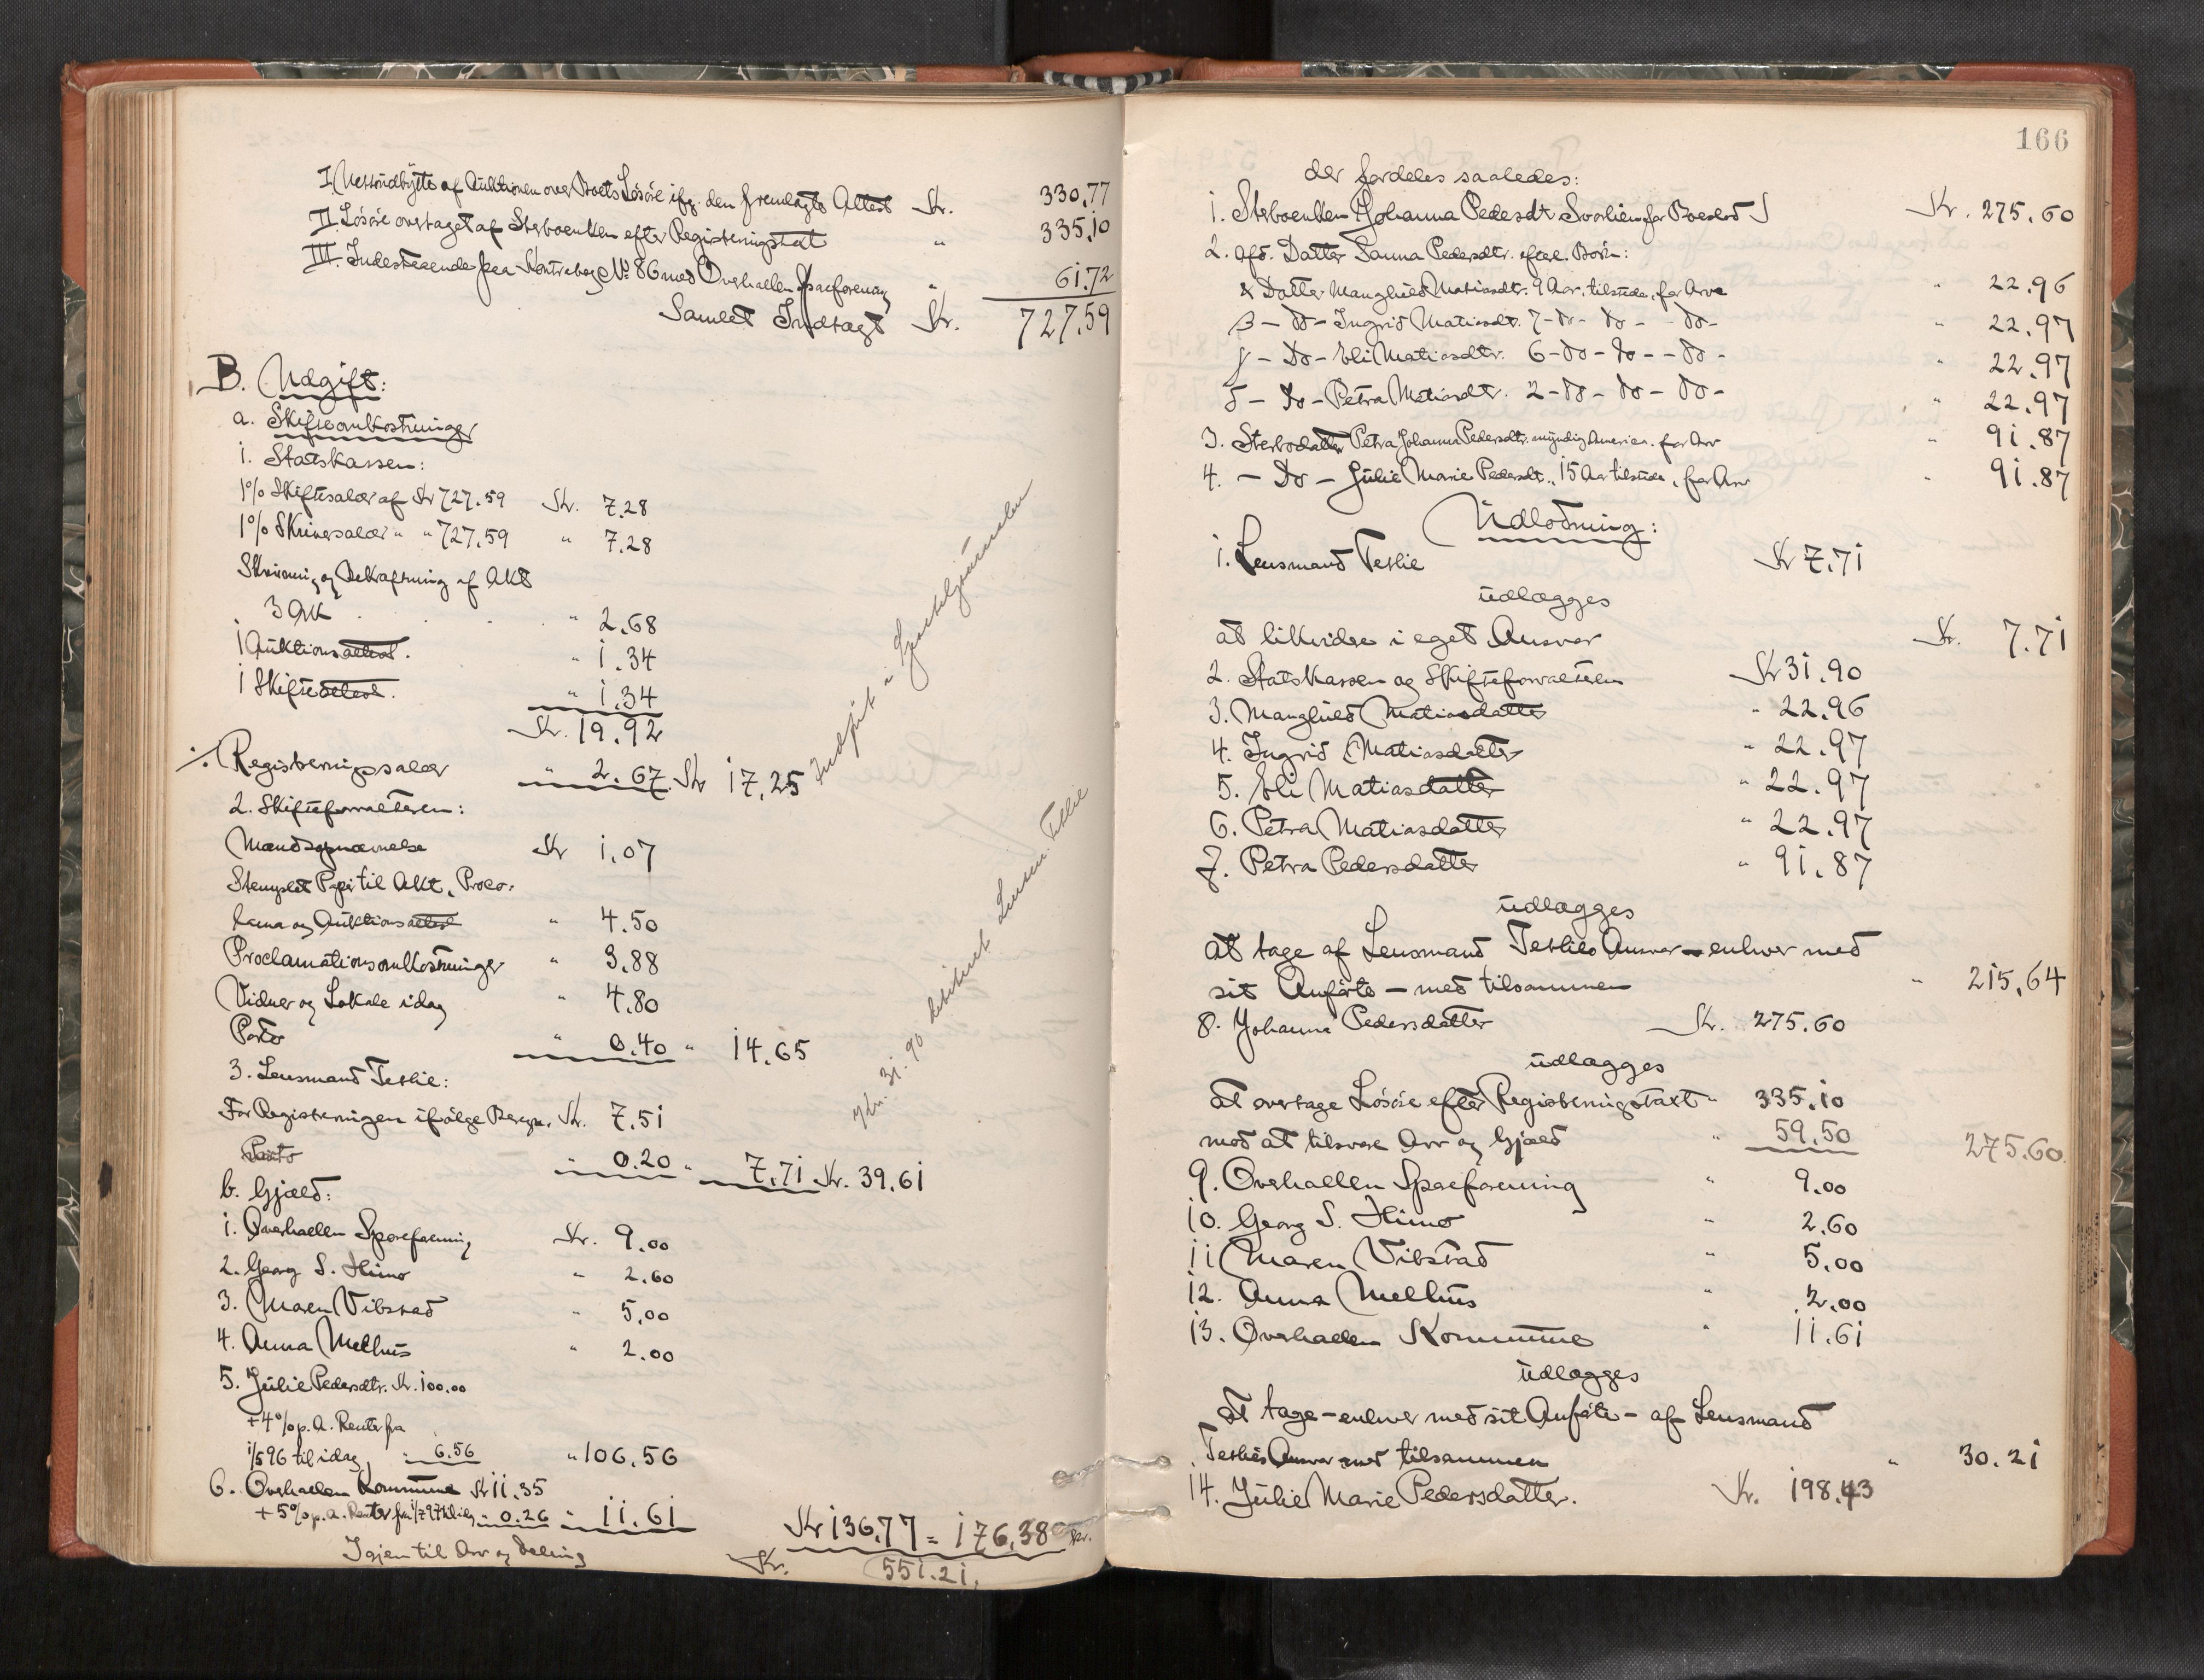 I. Nettoudbytte af Auktionen over Boets Løsøre ifg. den fremlagte Attest Kr. 330,77
II. Løsøre overtaget af Sterboenken efter Registreringstaxt " 335,10
III. Indestaaende paa Kontrabog No 86 med Overhallen Spareforening " 61,72
Samlet Indtægt Kr. 727,59
B. Udgift:
a. Skifteomkostninger
1. Statskassen:
1% Skiftesalær af Kr 727.59 Kr. 7.28
1% Skriversalær " " 727.59 " 7.28
Skrivning og Bekræftning af Akt
3 Ark " 2.68
1 Auktionsattest. " 1.34
1 Skifteattest. " 1.34
Kr. 19.92
./. Registreringssalær " 2.67 Kr 17,25
2. Skifteforvalteren:
Mandsopnævnelse Kr 1,07
Stemplet Papir til Akt, Proc-
lama og Auktionsattest " 4.50
Proclamationsomkostninger " 3,88
Vidner og Lokale idag " 4.80
Porto " 0.40 " 14.65
3. Lensmand Teslie:
For Registreringen ifølge Beregn. Kr. 7.51
Porto " 0.20 " 7,71 Kr. 39.61
b. Gjæld:
1. Overhallen Spareforening Kr. 9.00
2. Georg S. Himo " 2.60
3. Maren Vibstad " 5,00
4. Anna Melhus " 2.00
5. Julie Pedersdtr. Kr. 100.00
+ 4% p. A. Renter fra
1/5 96 til idag " 6.56 " 106,56
6. Overhallen Kommune Kr 11.35
+ 5% p. a. Renter fra 1/7 97 til idag " 0.26 " 11.61 Kr 136,77 = 176,38 Kr.
Igjen til Arv og Deling Kr. 551.21.
Kr. 31.90 debiteret Lensm. Teslie
166
der fordeles saaledes:
1. Sterboenken Johanna Pedersdt Svalien for Boeslod Kr. 275.60
2. Afd. Datter Sanna Pedersdtr. efterl. Børn:
α Datter Manghild Matiasdtr. 9 Aar, tilstede, for Arv " 22.96
β - Do - Ingrid Matiasdtr. 7 - Do - Do - Do - " 22.97
γ - Do - Eli Matiasdtr. 6 - Do - Do - Do - " 22.97
δ - Do - Petra Matiasdtr. 2 - Do - Do - Do - " 22.97
3. Sterbodatter Petra Johanna Pedersdtr. myndig Amerika. for Arv " 91.87
4. - Do - Julie Marie Pedersdt., 15 Aar tilstede, for Arv " 91.87
Udlodning:
1. Lensmand Teslie Kr 7.71
udlægges
at likvidere i eget Ansvar Kr. 7.71
2. Statskassen og Skifteforvalteren Kr 31.90
3. Manghild Matiasdatter " 22.96
4. Ingrid Matiasdatter " 22.97
5. Eli Matiasdatter " 22.97
6. Petra Matiasdatter " 22.97
7. Petra Pedersdatter " 91.87
udlægges
at tage af Lensmand Teslies Ansvar - enhver med
sit Anførte - med tilsammen " 215,64
8. Johanna Pedersdatter Kr. 275.60
udlægges
at overtage Løsøre efter Registreringstaxt " 335.10
mod at tilsvare Arv og Gjæld " 59.50 275.60
9. Overhallen Spareforening " 9.00
10. Georg S. Himo " 2.60
11 Maren Vibstad " 5.00
12. Anna Melhus " 2.00
13. Overhallen Kommune " 11.61
udlægges
at tage - enhver med sit Anførte - af Lensmand
Teslies Ansvar med tilsammen " 30.21
14. Julie Marie Pedersdatter. Kr. 198.43